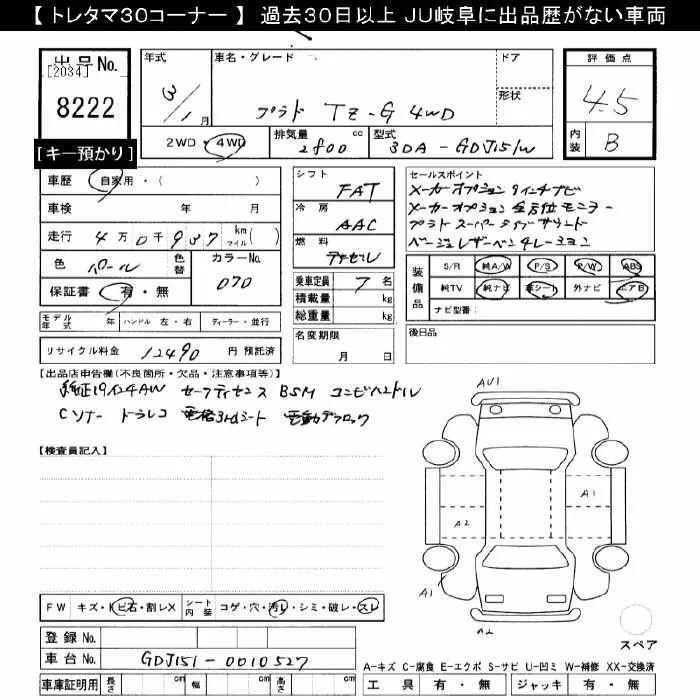 【 トレタマ30コーナー 】 過去30日以上 JU岐阜に出品歴がない車両
出品No.
[2034]
8222
[キー預かり]
年式 車名・グレード ドア
3/1月 プラド TZ-G 4WD 形状
2WD・4WD 排気量 2800 cc 型式 3DA-GDJ151W
評価点
4.5
内装 B
車歴 自家用・( )
車検 年 月
走行 4万0千937 km マイル( )
色 パール 色替 カラーNo. 070
保証書 有・無
モデル年式 年 ハンドル 左・右 ディーラー・並行
リサイクル料金 12490 円 預託済
シフト FAT
冷房 AAC
燃料 ディーゼル
乗車定員 7 名
積載量 kg
総重量 kg
名変期限 月 日
セールスポイント
メーカーオプション 9インチナビ
メーカーオプション 全方位モニター
プラドスーパーライブサウンド
ベージュレザー ベンチレーション
装備品 S/R 純A/W P/S P/W ABS
純TV 純ナビ 革シート 外ナビ エアB
ナビ型番:
後日品
【出品店申告欄(不良箇所・欠品・注意事項等)】
純正19インチAW セーフティセンス BSM コンビハンドル
Cソナー ドラレコ 電格3rdシート 電動デフロック
【検査員記入】
AU1
A1
A2
A1
A2
スペア
FW キズ・トビ石・割レX シート内装 コゲ・穴・汚レ・シミ・破レ・スレ
登録No.
車台No. GDJ151-0010527
車庫証明用 長さ cm 幅 cm 高さ cm
A-キズ C-腐食 E-エクボ S-サビ U-凹ミ W-補修 XX-交換済
工具 有・無 ジャッキ 有・無